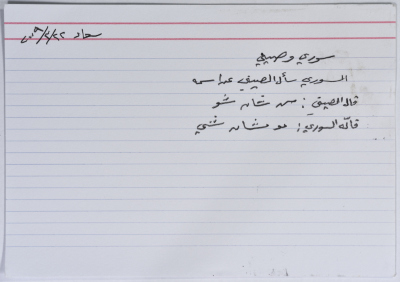 سعاد ٢٠٠٩/٢/٢٢
سوري وصيني
السوري سأل الصيني عن اسمه
قال الصيني : من شان شو
قاله السوري : مو مشان شي